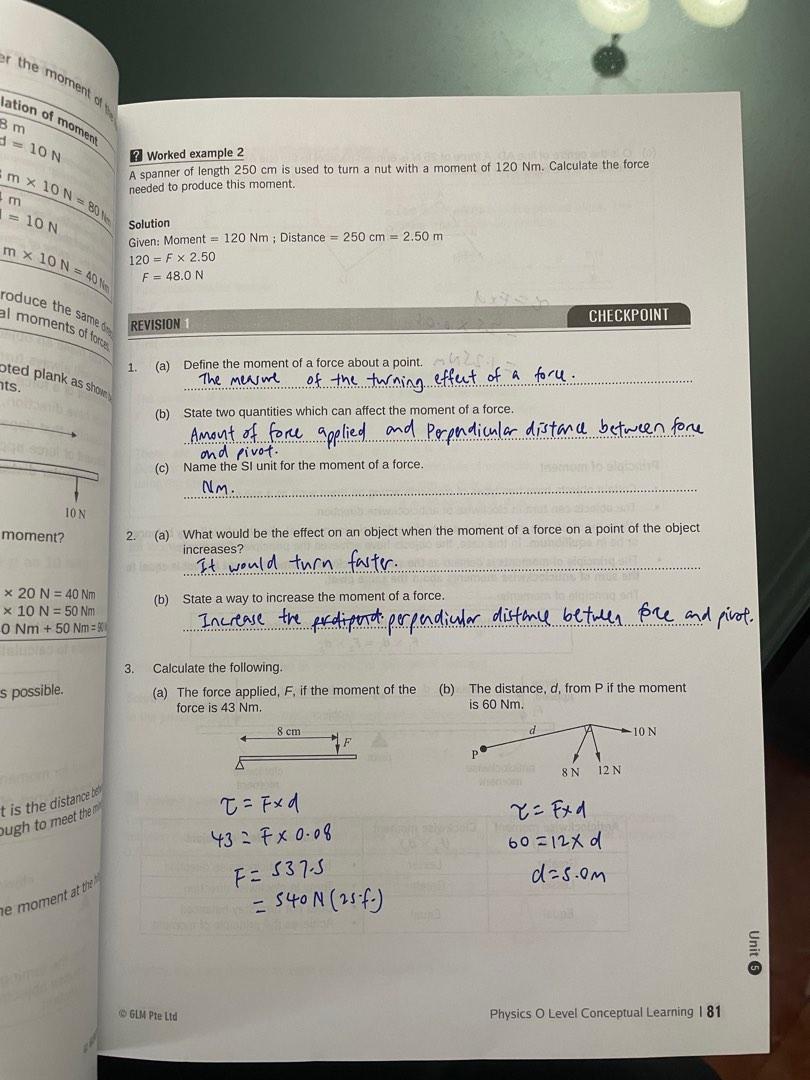 er the moment of
lation of moment
8 m
d = 10 N
m × 10 N = 80 Nm
m
= 10 N
m × 10 N = 40 Nm
roduce the same
al moments of forces
oted plank as shown
nts.
10 N
moment?
× 20 N = 40 Nm
× 10 N = 50 Nm
0 Nm + 50 Nm =
s possible.
t is the distance
ough to meet the
ne moment at the
? Worked example 2
A spanner of length 250 cm is used to turn a nut with a moment of 120 Nm. Calculate the force
needed to produce this moment.
Solution
Given: Moment = 120 Nm ; Distance = 250 cm = 2.50 m
120 = F × 2.50
F = 48.0 N
REVISION 1
CHECKPOINT
1. (a) Define the moment of a force about a point.
The measure of the turning effect of a force.
(b) State two quantities which can affect the moment of a force.
Amount of force applied and Perpendicular distance between force
and pivot.
(c) Name the SI unit for the moment of a force.
Nm.
2. (a) What would be the effect on an object when the moment of a force on a point of the object
increases?
It would turn faster.
(b) State a way to increase the moment of a force.
Increase the perpendicular distance between force and pivot.
3. Calculate the following.
(a) The force applied, F, if the moment of the
force is 43 Nm.
8 cm
F
τ = F×d
43 = F × 0.08
F = 537.5
= 540 N (2s.f.)
(b) The distance, d, from P if the moment
is 60 Nm.
d
10 N
P
8 N 12 N
τ = F×d
60 = 12 × d
d = 5.0m
Unit 5
© GLM Pte Ltd
Physics O Level Conceptual Learning | 81